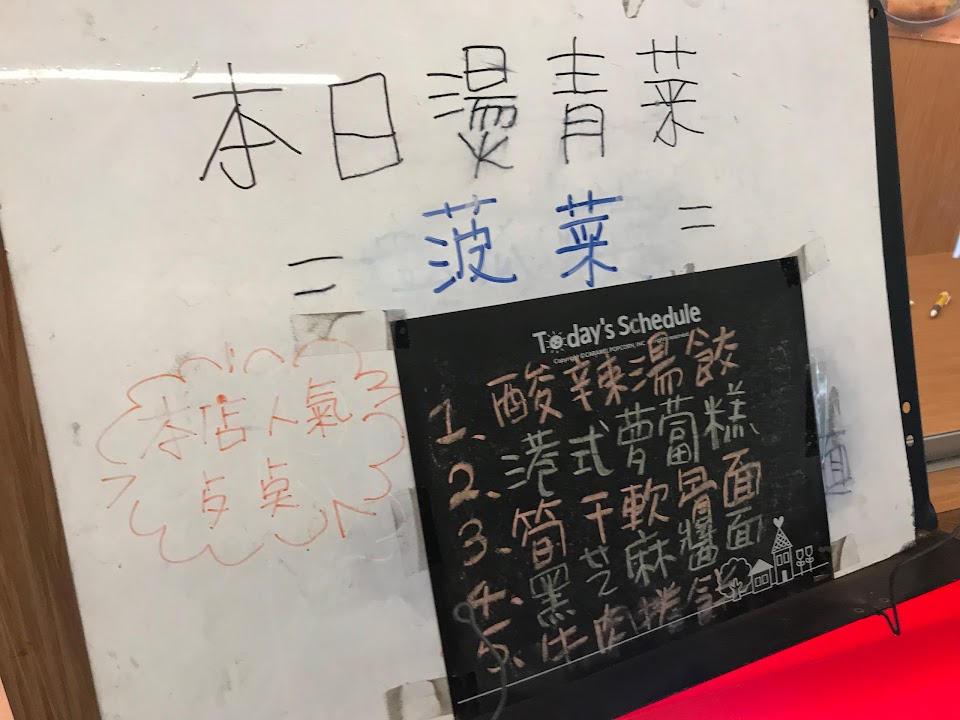 本日燙青菜
= 菠菜 =
Today's Schedule
Copyright ©CARAMEL POPCORN, INC. All rights reserved.
1、酸辣湯餃
2、港式萝蔔糕
3、筍干軟骨面
4、黑芝麻醬面
5、牛肉捲餅
本店人氣